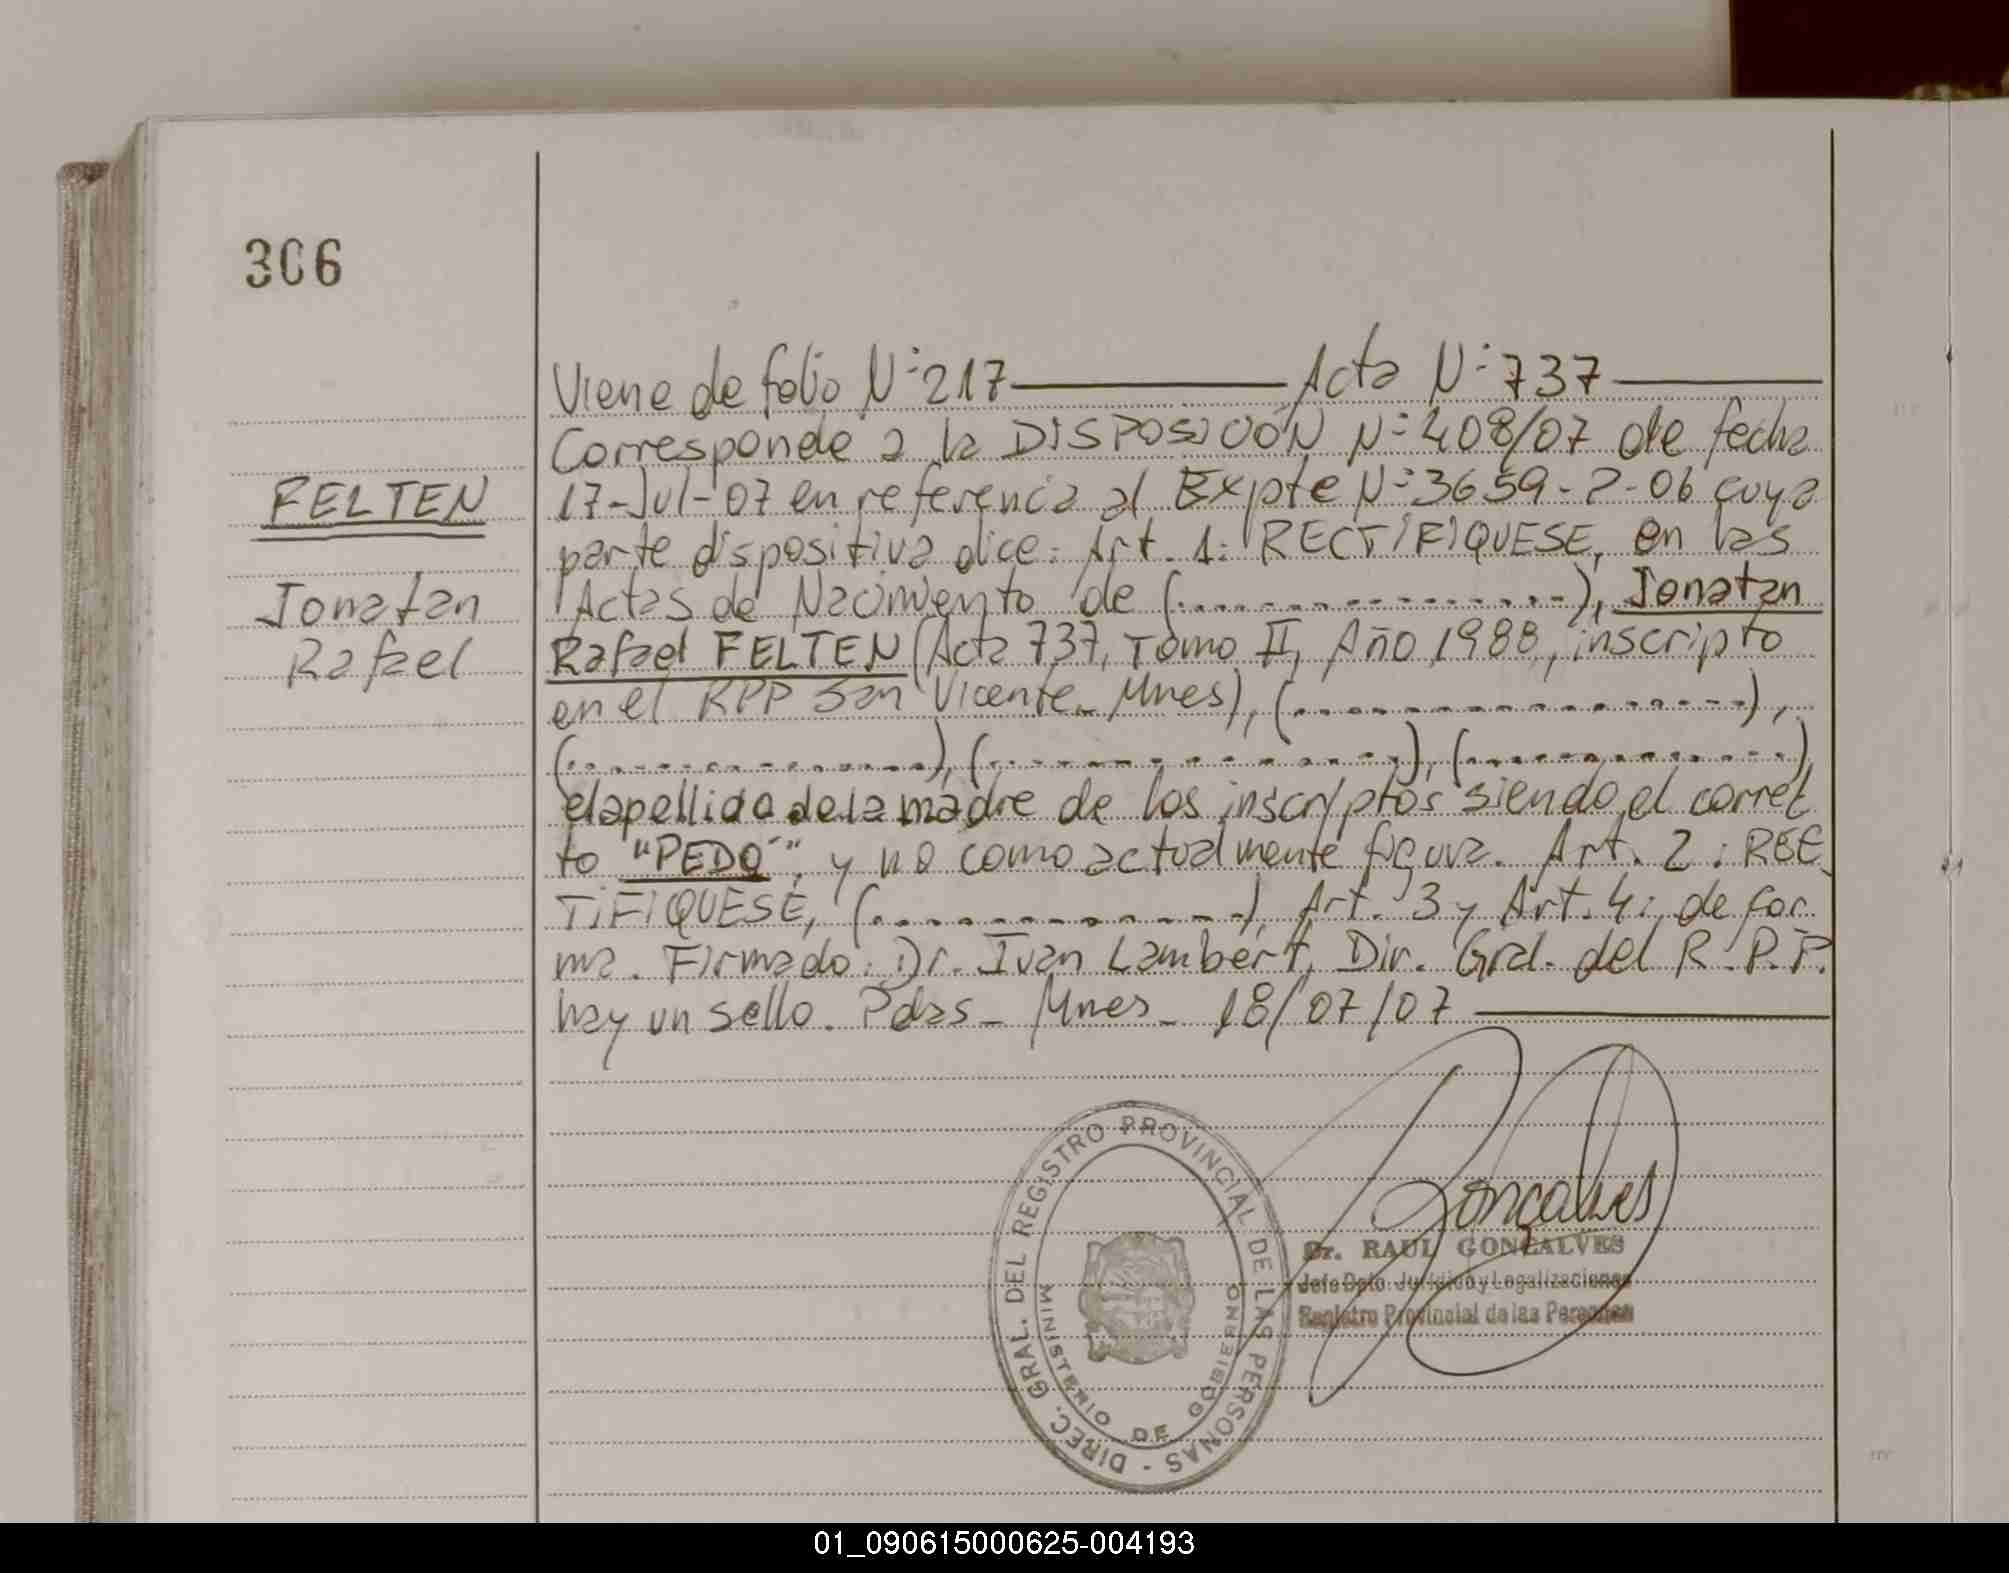 306
FELTEN
Jonatan
Rafael
Viene de folio N:217 Acta N:737
Corresponde a la DISPOSICIÓN N:408/07 de fecha
17-Jul-07 en referencia al Expte N:3659-2-06 cuya
parte dispositiva dice: Art. 1: RECTIFIQUESE, en las
Actas de Nacimiento de (................), Jonatan
Rafael FELTEN (Acta 737, Tomo II, Año 1988, inscripto
en el RPP San Vicente_ Mnes), (................),
(................), (................), (................)
el apellido de la madre de los inscriptos siendo el correc
to "PEDO", y no como actualmente figura. Art. 2: REC
TIFIQUESE, (................), Art. 3 y Art. 4:, de for
ma. Firmado: Dr. Ivan Lambert, Dir. Gral. del R.P.P.
hay un sello. Pdas_ Mnes_ 18/07/07
DIREC. GRAL. DEL REGISTRO PROVINCIAL DE LAS PERSONAS -
MINISTERIO DE GOBIERNO
Gonçalves
Dr. RAUL GONCALVES
Jefe Dpto. Jurídico y Legalizaciones
Registro Provincial de las Personas
01_090615000625-004193